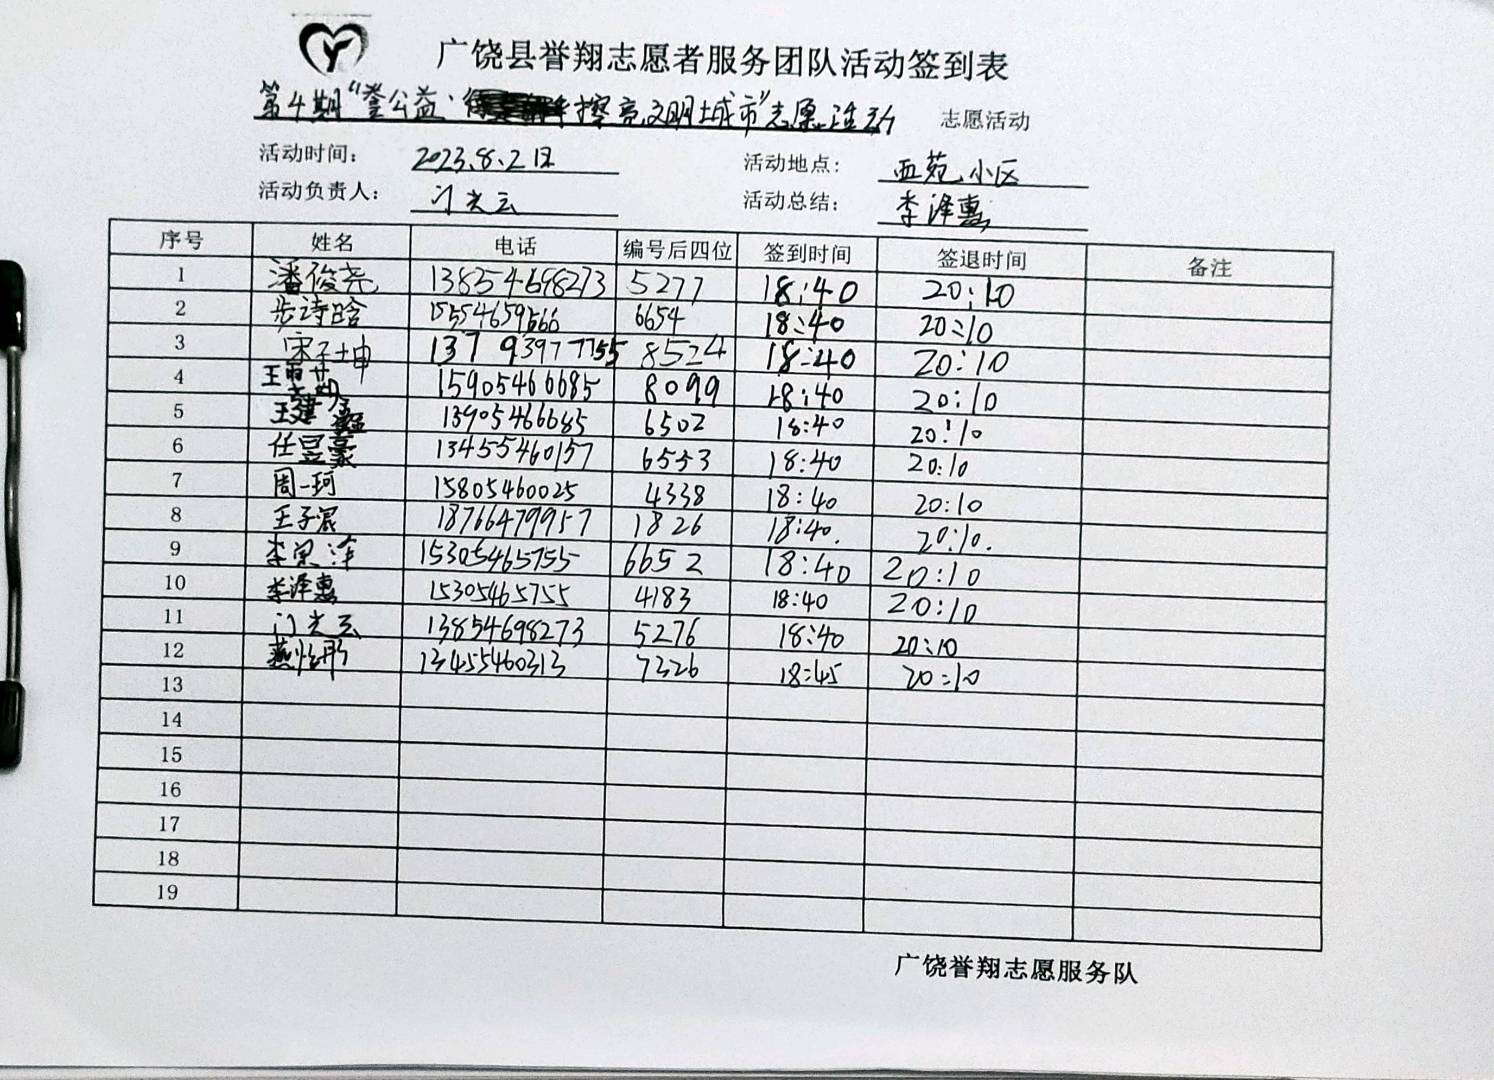 广饶县誉翔志愿者服务团队活动签到表
第4期“誉公益·擦亮文明城市”志愿活动 志愿活动
活动时间: 2023.8.2日 活动地点: 西苑小区
活动负责人: 门光云 活动总结: 李泽惠
序号 姓名 电话 编号后四位 签到时间 签退时间 备注
1 潘俊尧 13854698273 5277 18:40 20:10
2 步诗晗 15554659566 6654 18:40 20:10
3 宋子坤 13793977755 8524 18:40 20:10
4 15905466685 8099 18:40 20:10
5 王建 13905466685 6502 18:40 20:10
6 任昱豪 13455460157 6553 18:40 20:10
7 周一珂 15805460025 4338 18:40 20:10
8 王子宸 18766479957 1826 18:40. 20:10.
9 李泽 15305465755 6652 18:40 20:10
10 李泽惠 15305465755 4183 18:40 20:10
11 门光云 13854698273 5276 18:40 20:10
12 燕怡彤 13455460313 7326 18:45 20:10
13
14
15
16
17
18
19
广饶誉翔志愿服务队